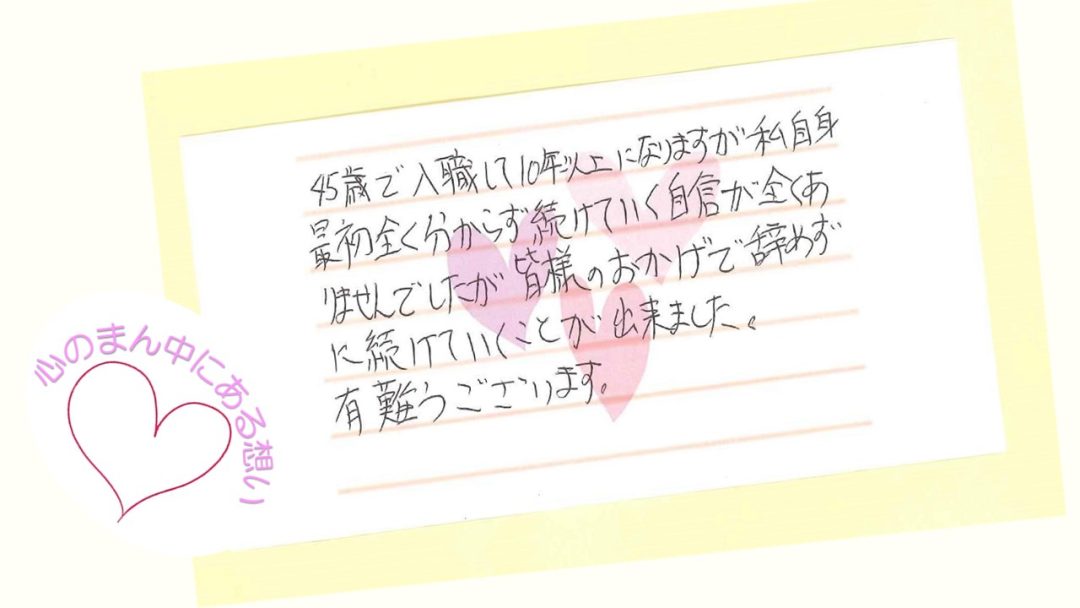 45歳で入職して10年以上になりますが私自身
最初全く分からず続けていく自信が全くあ
りませんでしたが皆様のおかげで辞めず
に続けていくことが出来ました。
有難うございます。
心のまん中にある想い